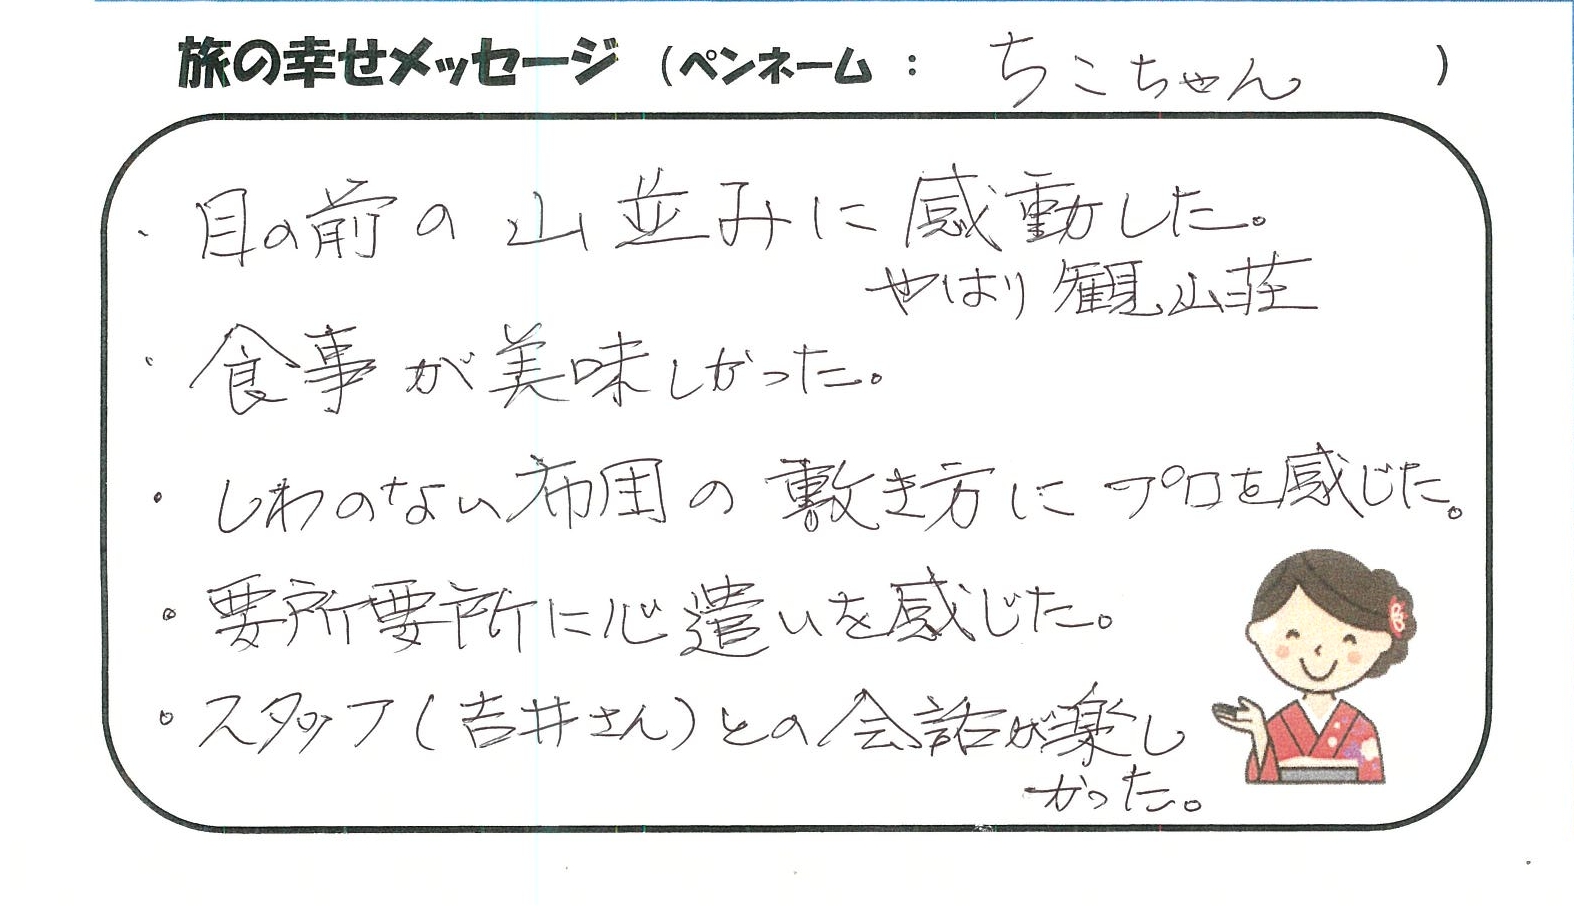 旅の幸せメッセージ（ペンネーム： ちこちゃん ）
・目の前の山並みに感動した。
やはり観山荘
・食事が美味しかった。
・しわのない布団の敷き方にプロを感じた。
・要所要所に心遣いを感じた。
・スタッフ（吉井さん）との会話が楽し
かった。